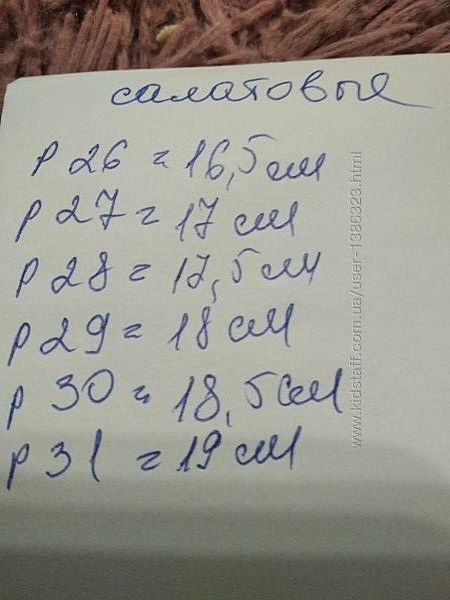 салатовые
р 26 = 16,5 см
р 27 = 17 см
р 28 = 17,5 см
р 29 = 18 см
р 30 = 18,5 см
р 31 = 19 см
www.kidstaff.com.ua/user-1386323.html